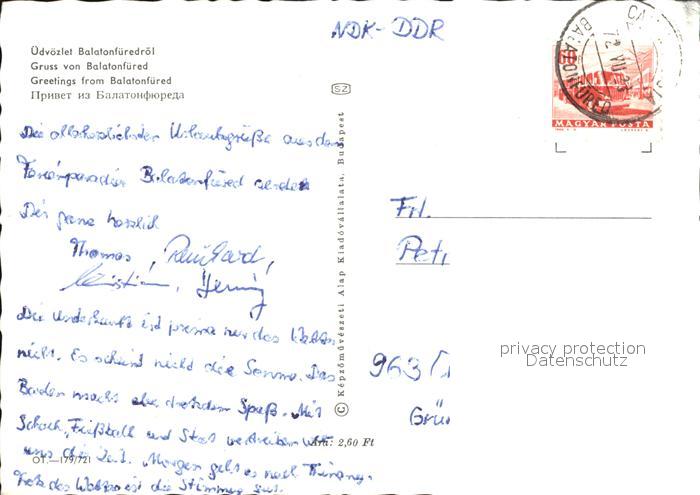 NDK-DDR
Üdvözlet Balatonfüredről
Gruss von Balatonfüred
Greetings from Balatonfüred
Привет из Балатонфюреда
Die allerherzlichsten Urlaubsgrüße aus dem
Ferienparadies Balatonfüred sendet
Dir ganz herzlich
Thomas, Reinhard,
Christian, Henning
Die Unterkunft ist prima nur das Wetter
nicht. Es scheint nicht die Sonne. Das
Baden macht aber trotzdem Spaß. Mit
Schach, Fußball und Skat vertreiben wir
uns die Zeit. Morgen geht es nach Tihany.
Trotz des Wetters ist die Stimmung gut.
OT.—179/721
Ára: 2,60 Ft
© Képzőművészeti Alap Kiadóvállalata, Budapest
SZ
BALATONFÜRED
72 VII 23
MAGYAR POSTA
Frl.
Petr
963
Grü
privacy protection
Datenschutz